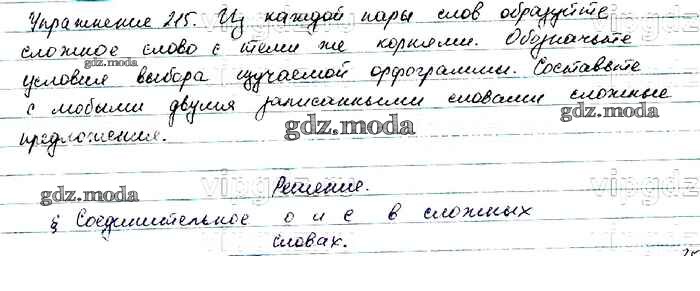 Упражнение 215. Из каждой пары слов образуйте
сложное слово с теми же корнями. Обозначьте
gdz.moda
условия выбора изучаемой орфограммы. Составьте
с любыми двумя записанными словами сложные
gdz.moda
gdz.moda
предложения.
vipgdz
Решение.
gdz.moda
§ Соединительное о и е в сложных
словах.